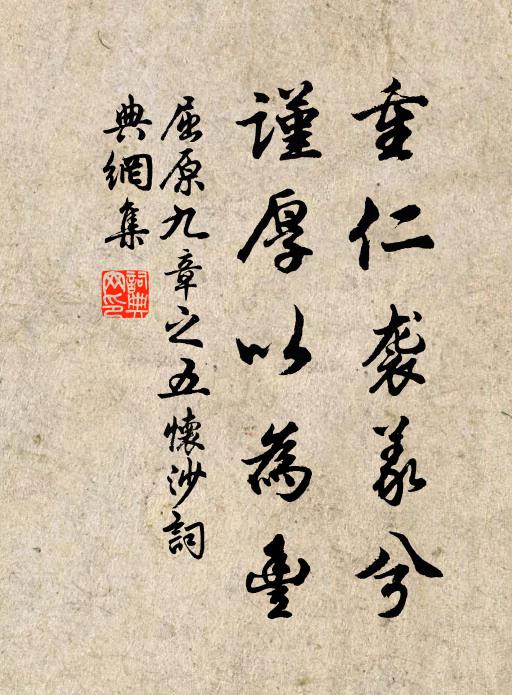 重仁袭義兮
謹厚以為豊
屈原九章之五懷沙詞
典網集
詞典
网印